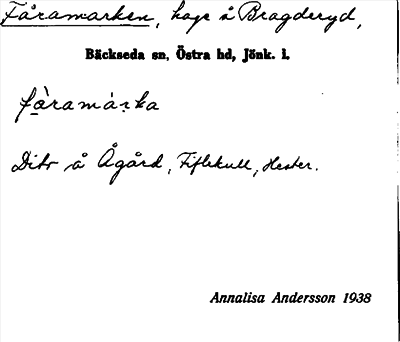 Fåramarken, hage å Bragderyd,
Bäckseda sn, Östra hd, Jönk. l.
fà̱ramár̤ka
Dito å Ågård, Fiflekull, Hester.
Annalisa Andersson 1938